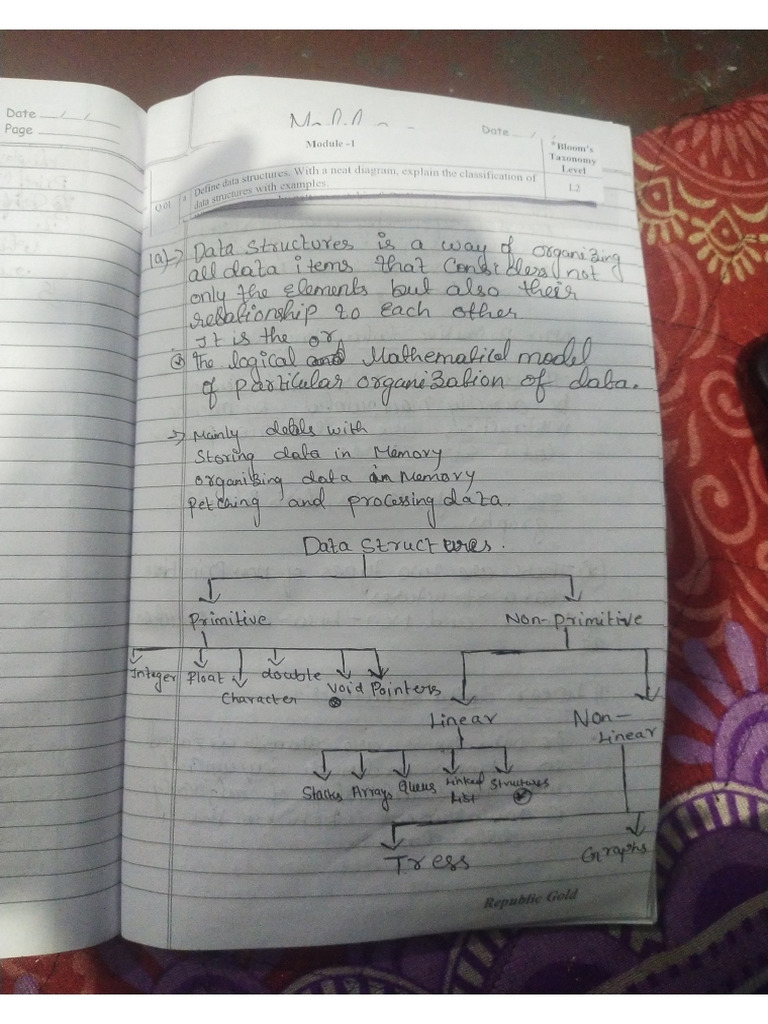 Date __/__/__
Page
Date __/__/
Module -1
*Bloom's
Taxonomy
Level
Q.01 a Define data structures. With a neat diagram, explain the classification of
data structures with examples.
L2
1a)-> Data Structures is a way of organizing
all data items that Considers not
only the elements but also their
relationship to Each other
It is the or
The logical Mathematical model
of particular organization of data.
-> Mainly deals with
Storing data in Memory
organizing data in Memory
Fetching and processing data.
Data Structures.
Primitive Non-primitive
Integer Float Character double Void Pointers
Linear Non-
Linear
Stacks Arrays Queus Linked
List Structures
Tress Graphs
Republic Gold